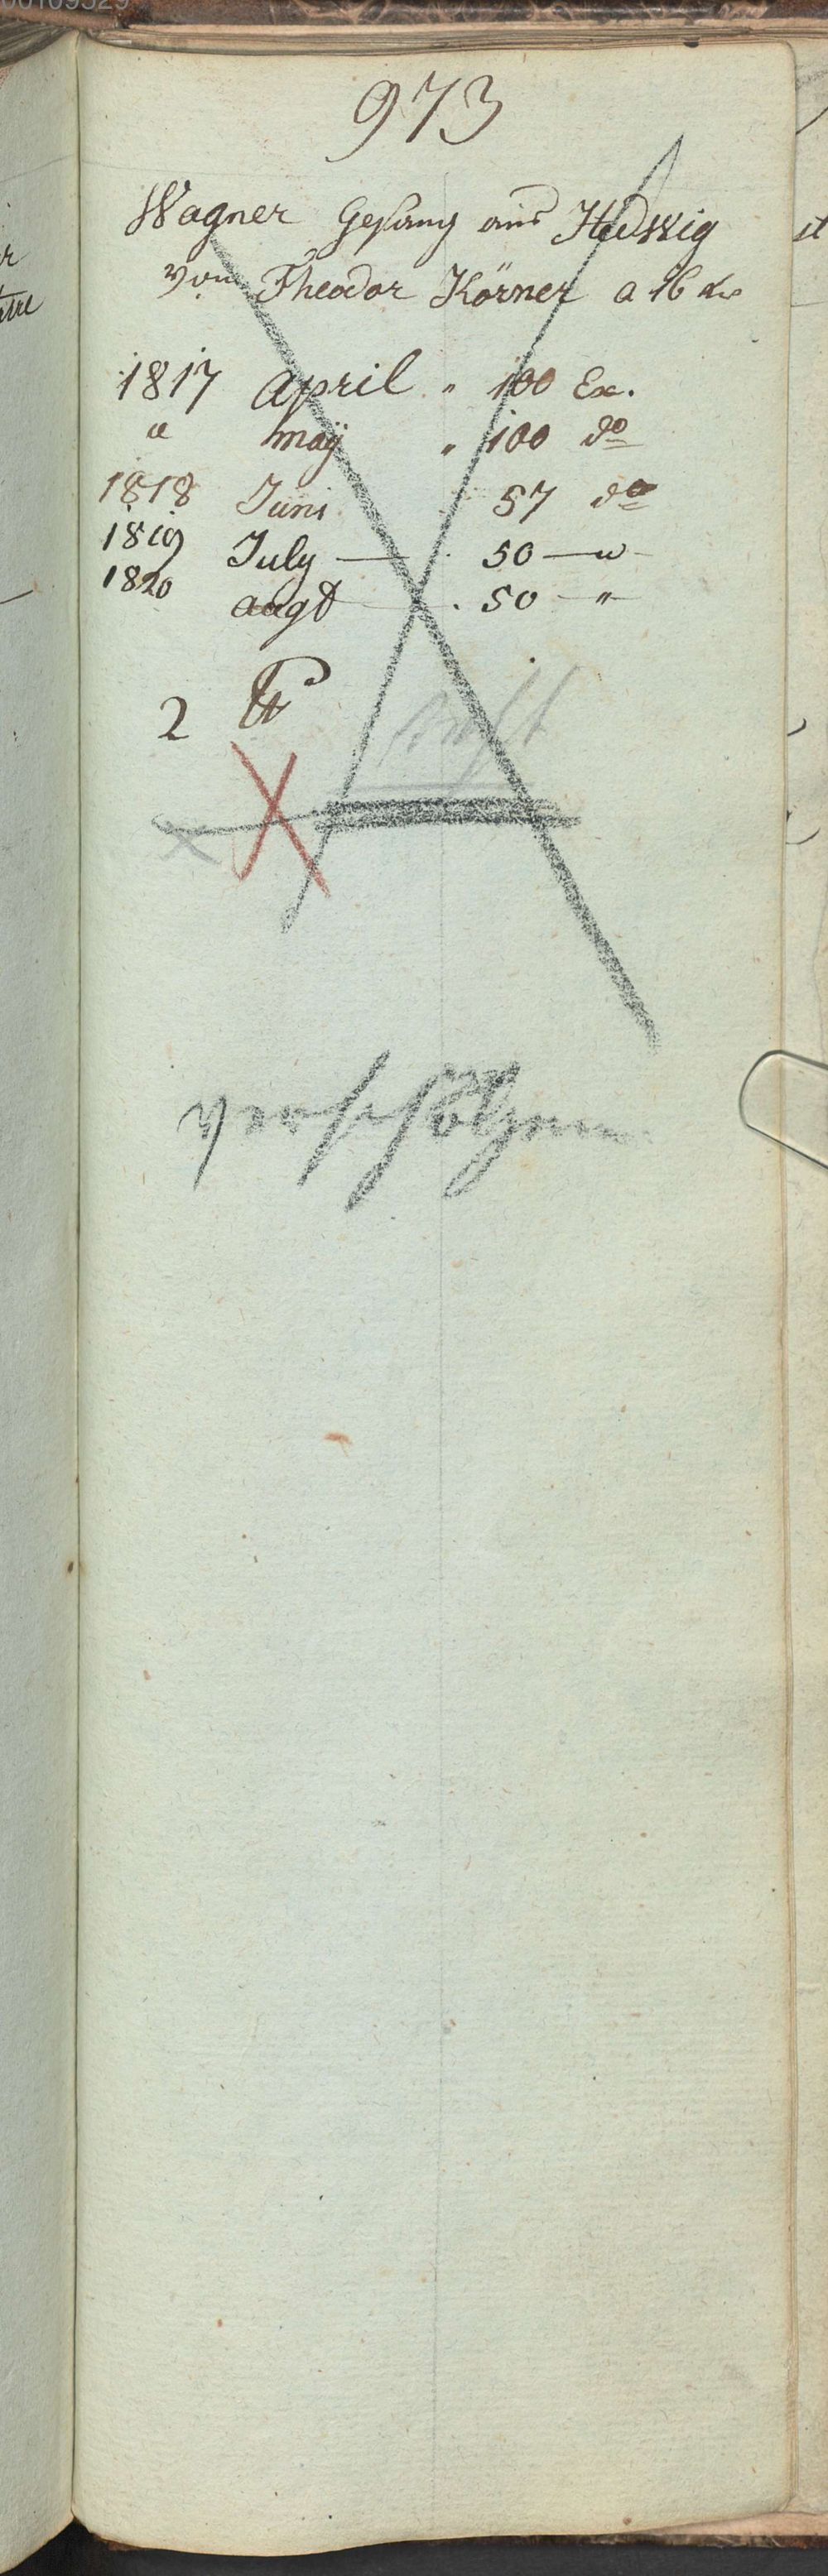 973
Wagner Gesang aus Hedwig
von Theodor Körner a 16 kr
1817 April " 100 Ex.
" may " 100 do
1818 Juni 57 do
1819 July — 50 — " —
1820 augt — 50 — " —
2